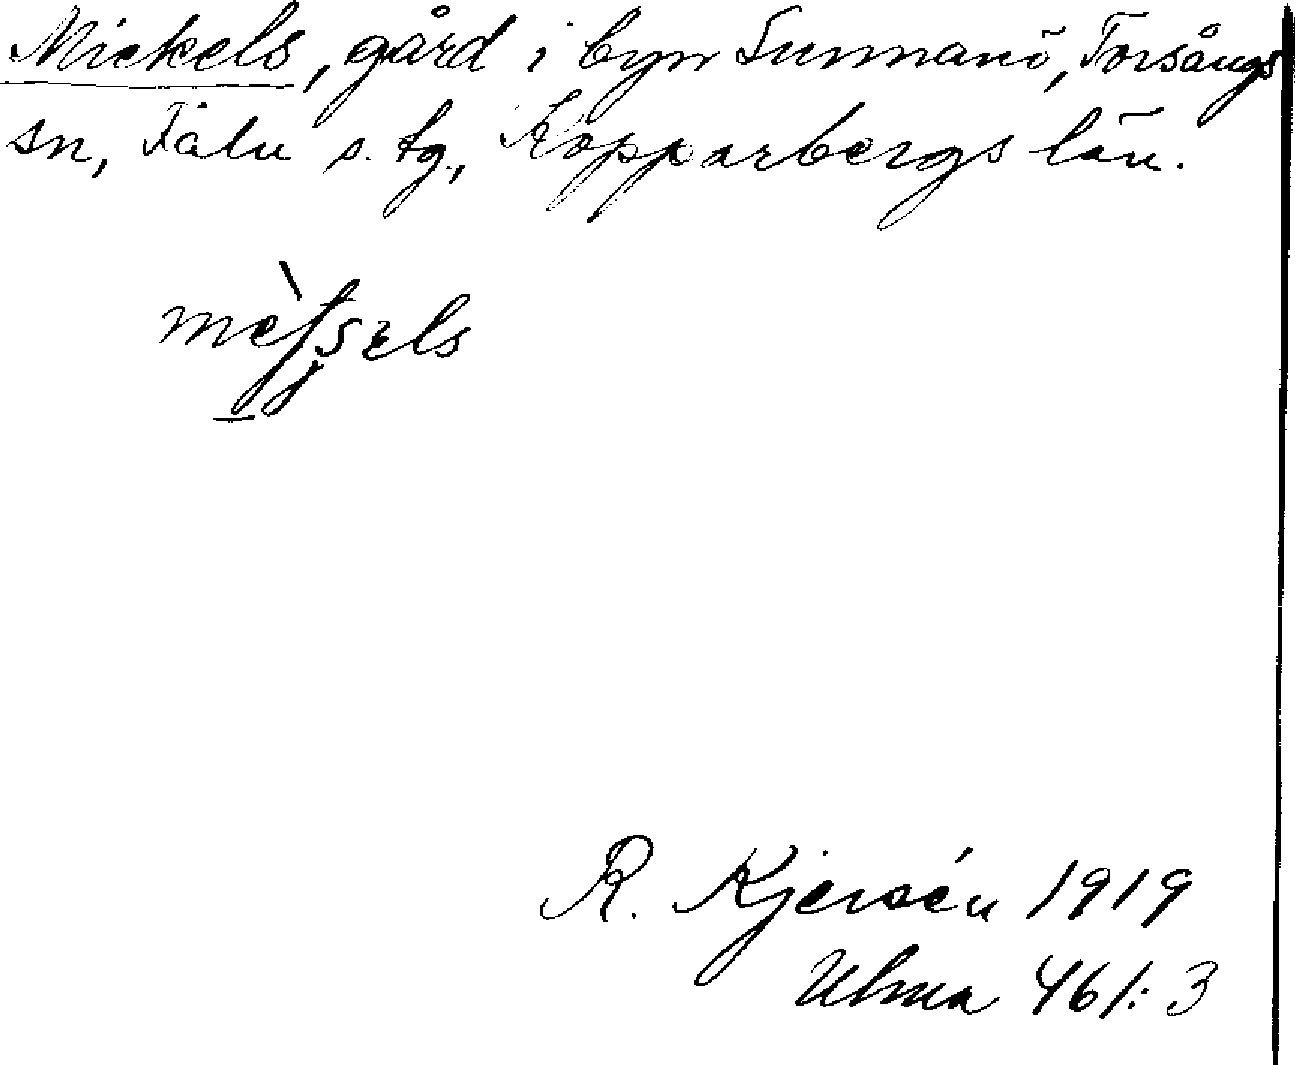 Mickels, gård i byn Sunnanö, Torsångs
sn, Falu s. tg., Kopparbergs län.
R. Kjersén 1919
Ulma 461:3